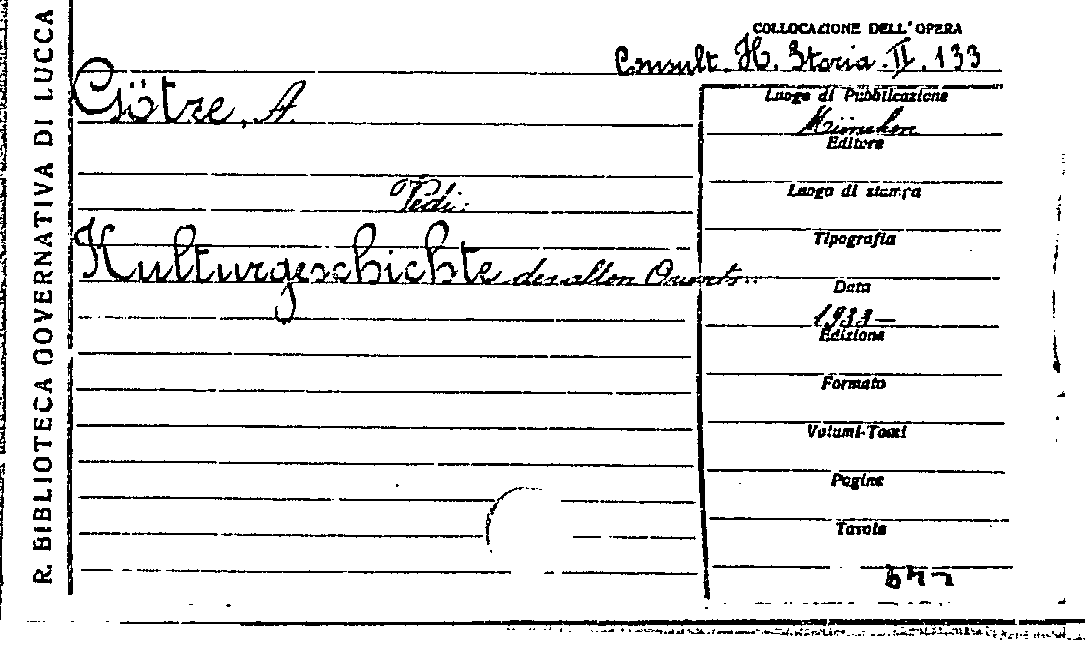 R. BIBLIOTECA GOVERNATIVA DI LUCCA
COLLOCAZIONE DELL'OPERA
Consult. H. Storia. II. 133
Götze, A.
Vedi:
Kulturgeschichte des alten Orients..
Luogo di Pubblicazione
München
Editore
Luogo di stampa
Tipografia
Data
1933—
Edizione
Formato
Volumi-Tomi
Pagine
Tavole